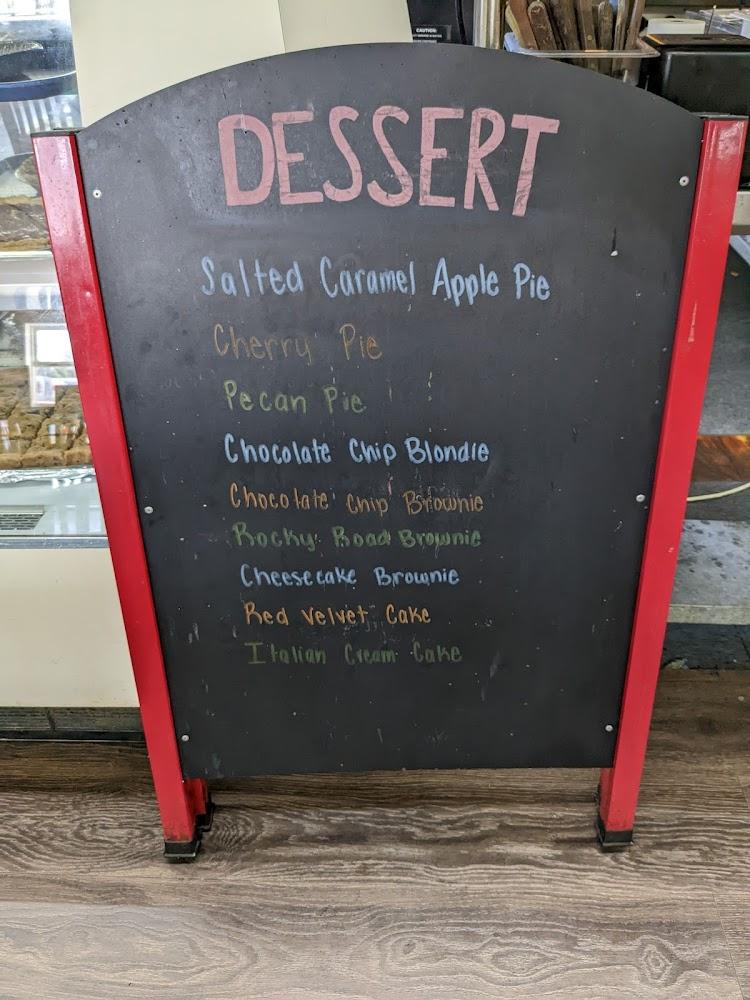 CAUTION:
DESSERT
Salted Caramel Apple Pie
Cherry Pie
Pecan Pie
Chocolate Chip Blondie
Chocolate Chip Brownie
Rocky Road Brownie
Cheesecake Brownie
Red Velvet Cake
Italian Cream Cake